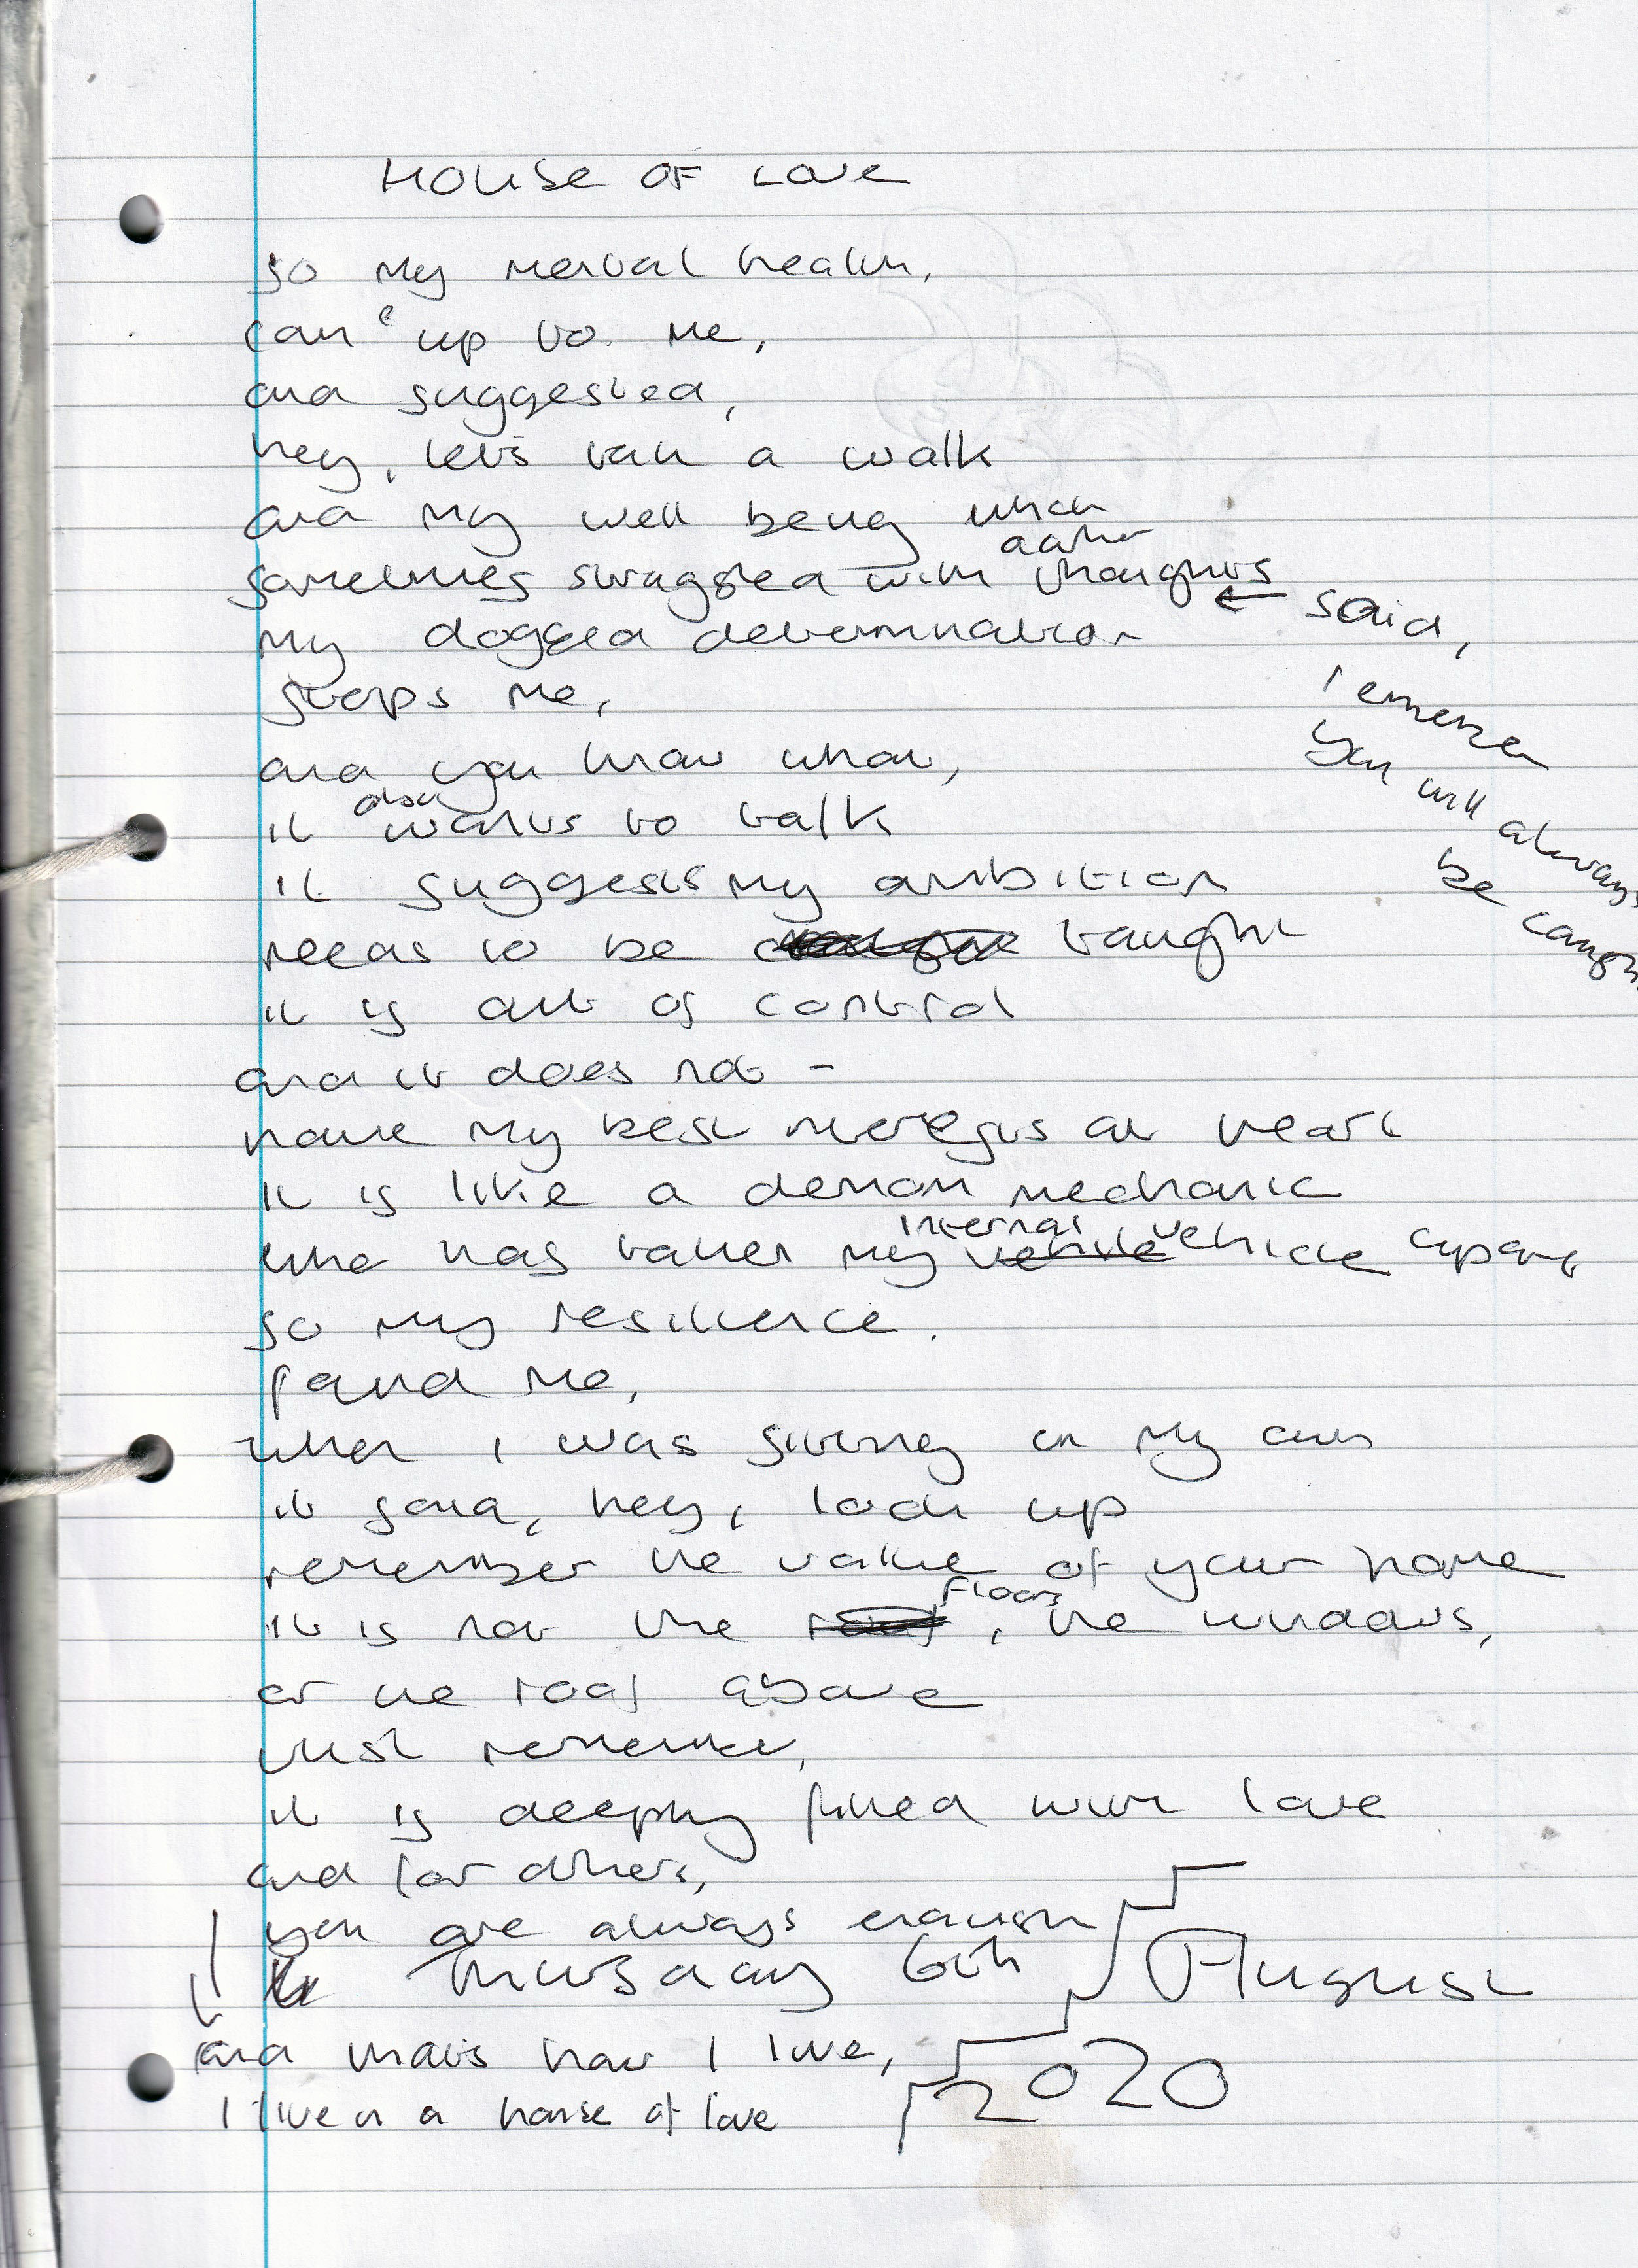 HOUSE OF LOVE
so my mental health,
came up to me,
and suggested,
hey, let's talk a walk
and my well being which
sometimes struggled with other thoughts
said,
remember
you will always
be caught
my dogged determination
stops me,
and you know what,
it also wants to talk
it suggests my ambition
needs to be taught
it is out of control
and it does not -
have my best interests at heart
it is like a demon mechanic
who has taken my internal vehicle apart
so my resilience.
found me,
when I was sitting on my own
it said, hey, look up
remember the value of your home
it is not the floors, the windows,
or the roof above
just remember,
it is deeply filled with love
and for others,
you are always enough
Thursday 6th August
2020
and that's how I live,
I live in a house of love